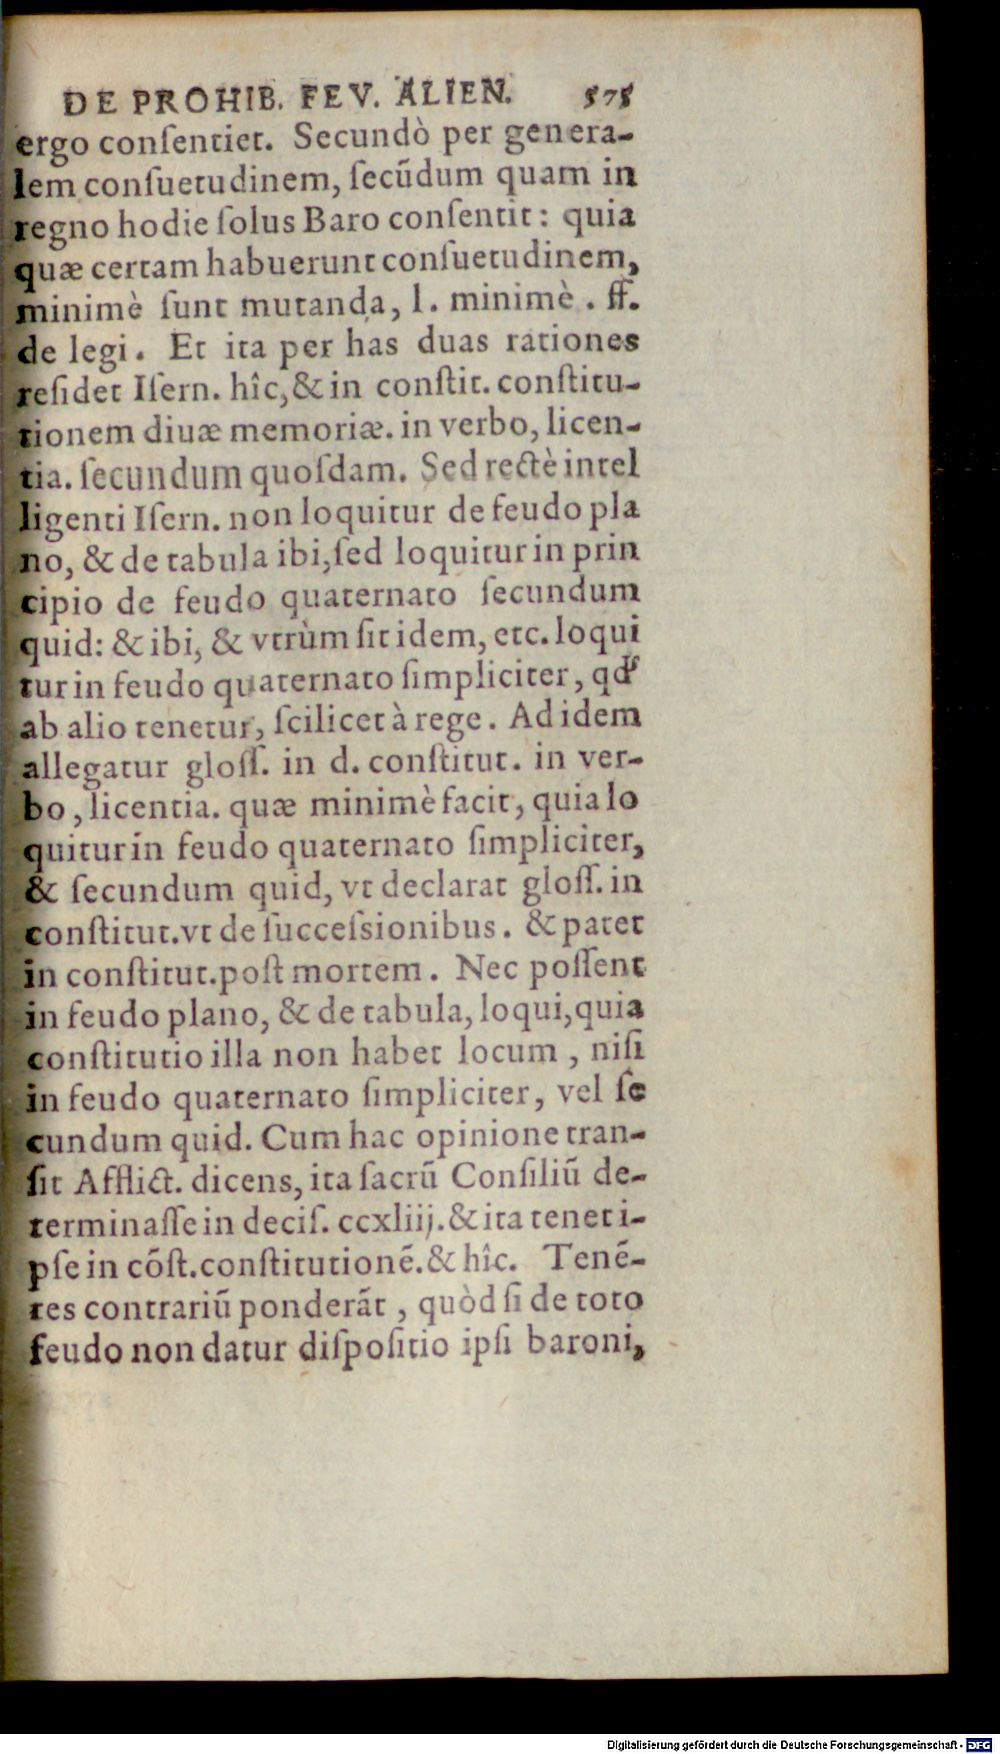 DE PROHIB. FEV. ALIEN. 575
ergo conſentiet. Secundò per genera-
lem conſuetudinem, ſecũdum quam in
regno hodie ſolus Baro conſentit: quia
quæ certam habuerunt conſuetudinem,
minimè ſunt mutanda, l. minimè . ff.
de legi. Et ita per has duas rationes
reſidet Iſern. hîc, & in conſtit. conſtitu-
tionem diuæ memoriæ. in verbo, licen-
tia. ſecundum quoſdam. Sed rectè intel
ligenti Iſern. non loquitur de feudo pla
no, & de tabula ibi, ſed loquitur in prin
cipio de feudo quaternato ſecundum
quid: & ibi, & vtrùm ſit idem, etc. loqui
tur in feudo quaternato ſimpliciter,
ab alio tenetur, ſcilicet à rege. Ad idem
allegatur gloſſ. in d. conſtitut. in ver-
bo, licentia. quæ minimè facit, quia lo
quitur in feudo quaternato ſimpliciter,
& ſecundum quid, vt declarat gloſſ. in
conſtitut. vt de ſucceſsionibus. & patet
in conſtitut. poſt mortem. Nec poſſent
in feudo plano, & de tabula, loqui, quia
conſtitutio illa non habet locum, niſi
in feudo quaternato ſimpliciter, vel ſe
cundum quid. Cum hac opinione tran-
ſit Afflict. dicens, ita ſacrũ Conſiliũ de-
terminaſſe in deciſ. ccxliij. & ita tenet i-
pſe in cõſt. conſtitutionẽ. & hîc. Tenẽ-
tes contrariũ ponderãt, quòd ſi de toto
feudo non datur diſpoſitio ipſi baroni,
Digitalisierung gefördert durch die Deutsche Forschungsgemeinschaft - DFG